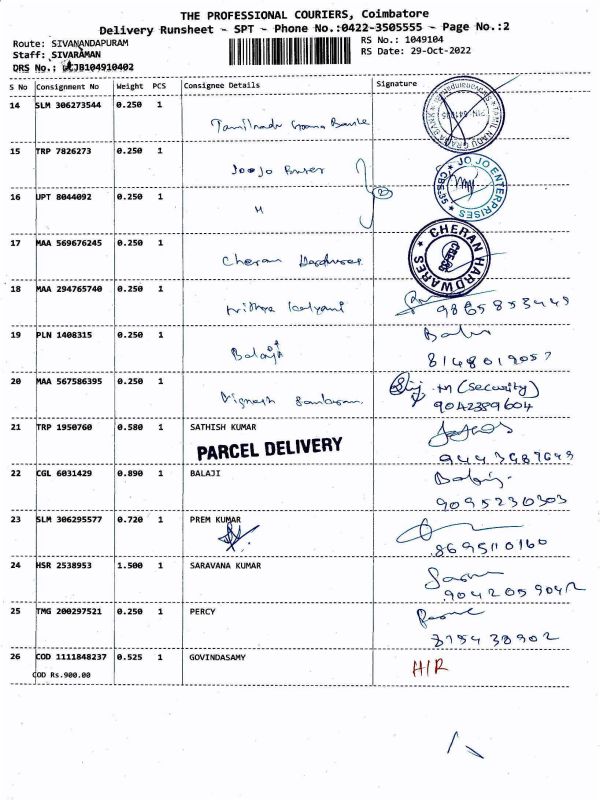 THE PROFESSIONAL COURIERS, Coimbatore
Delivery Runsheet - SPT - Phone No.:0422-3505555 - Page No.:2
Route: SIVANANDAPURAM
RS No.: 1049104
Staff: SIVARAMAN
RS Date: 29-Oct-2022
DRS No.: JB104910402
S No Consignment No Weight PCS Consignee Details Signature
14 SLM 306273544 0.250 1
Tamilnadu Grama Bank
15 TRP 7826273 0.250 1
JO JO ENTERPRISES
CBE-35
16 UPT 8044092 0.250 1
17 MAA 569676245 0.250 1
Cheran
CHERAN HARDWARES
18 MAA 294765740 0.250 1
9865853449
19 PLN 1408315 0.250 1
Balaji
8148019057
20 MAA 567586395 0.250 1
Vignesh
M (Security)
9042389604
21 TRP 1950760 0.580 1 SATHISH KUMAR
PARCEL DELIVERY
22 CGL 6031429 0.890 1 BALAJI
9095230303
23 SLM 306295577 0.720 1 PREM KUMAR
8695110160
24 HSR 2538953 1.500 1 SARAVANA KUMAR
25 TMG 200297521 0.250 1 PERCY
26 COD 1111848237 0.525 1 GOVINDASAMY
H/R
COD Rs.900.00